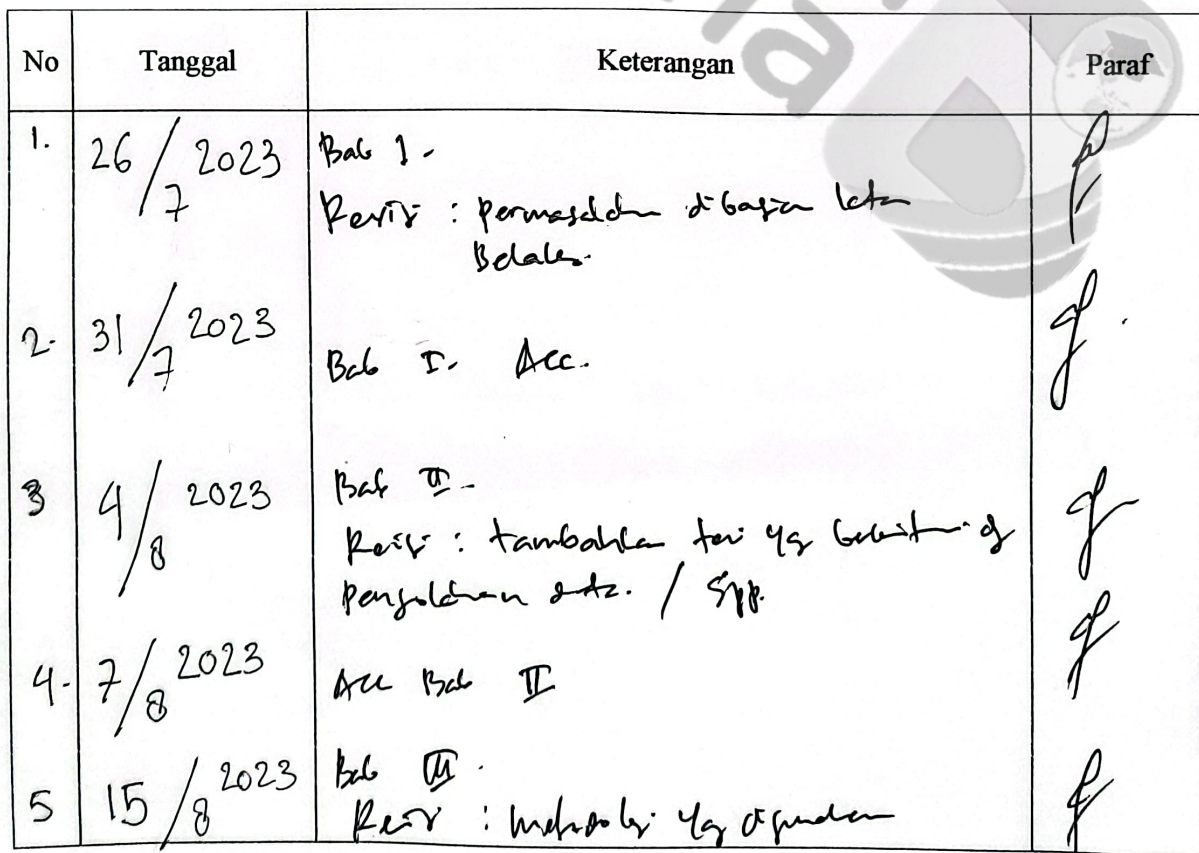 No Tanggal Keterangan Paraf
1. 26/7 2023 Bab 1.
Revisi : permasalahan dibagian latar
Belakang.
2. 31/7 2023 Bab I. Acc.
3 4/8 2023 Bab II.
Revisi : tambahkan teori yg berkaitan dg
pengolahan data. / Spp.
4. 7/8 2023 Acc Bab II
5 15/8 2023 Bab III.
Revisi : metodologi yg digunakan